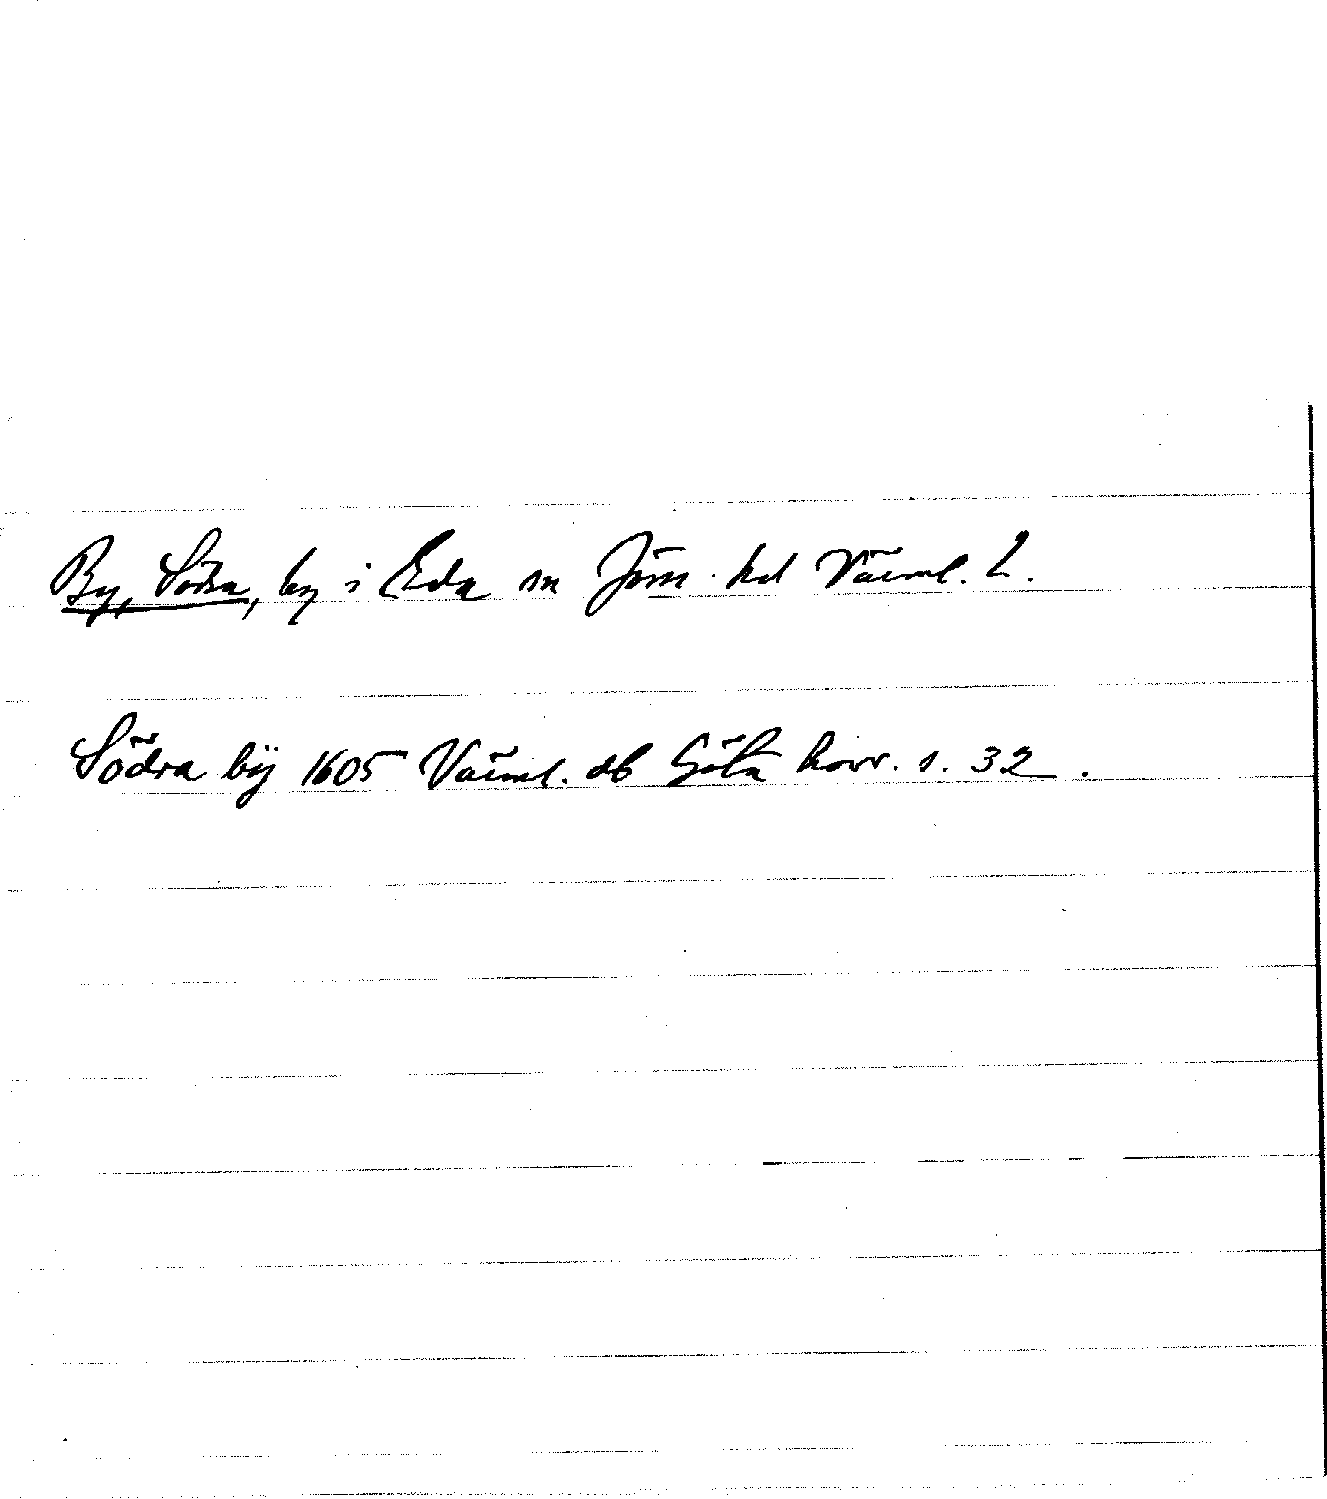 By, Södra, by i Eda sn Jöss. hd Värml. L.
Södra bÿ 1605 Värml. db Göta hovr. s. 32.